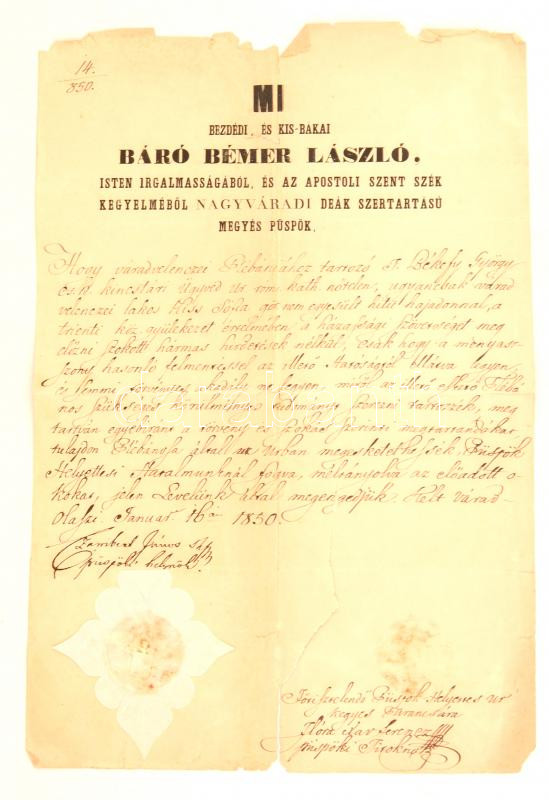 14.
850.
MI
BEZDÉDI, ÉS KIS-BAKAI
BÁRÓ BÉMER LÁSZLÓ.
ISTEN IRGALMASSÁGÁBÓL, ÉS AZ APOSTOLI SZENT SZÉK
KEGYELMÉBŐL NAGYVÁRADI DEÁK SZERTARTÁSÚ
MEGYÉS PÜSPÖK.
Hogy váradvelenczei Plébániához tartozó T. Békefy György
cs. k. kincstári Ügyved Ur róm. kath. nőtelen, ugyancsak várad
velenczei lakos Kiss Sofia gör. nem egyesült hitű hajadonnal, a
trienti köz gyülekezet értelmében a házassági szövetséget meg
előzni szokott hármas hirdetések nélkül, csak hogy a menyas-
szony hasonló felmentéssel az illető Hatóságától ellátva legyen,
és semmi törvényes akadály ne legyen, miről az illető Plébá
nos szükséges tudományt szerezni tartozik, meg
tartván egyebiránt a törvény és szokás szerinti
tulajdon Plébánosa által az Urban megeskettethessék, Püspök
Helyettesi Hatalmunknál fogva, méltányolva az előadott o-
kokat, jelen Levelünk által megengedjük. Kelt Várad
Olaszi Januar 16án 1850.
János
püspöki helynök
Főtisztelendő Püspök Helyettes Ur
kegyes Parancsára
Flóra Xav Ferencz
püspöki Titoknok